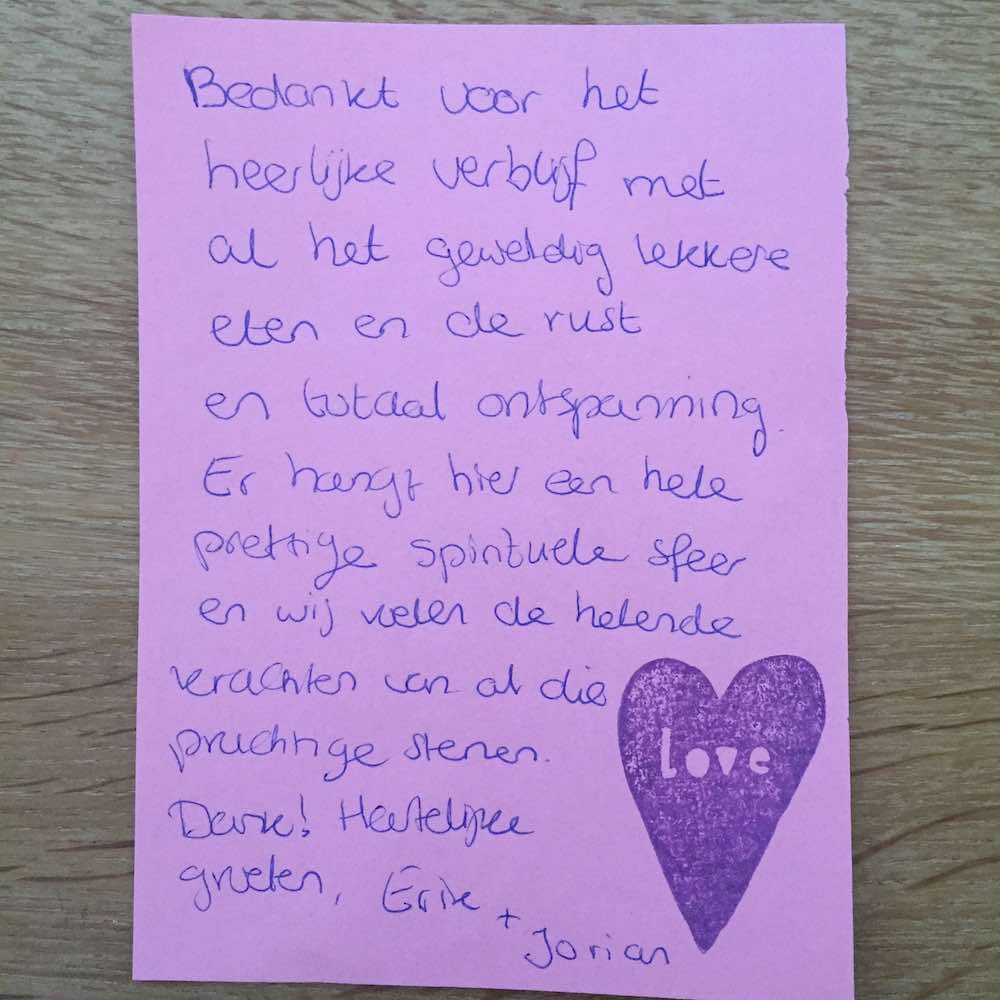 Bedankt voor het
heerlijke verblijf met
al het geweldig lekkere
eten en de rust
en totaal ontspanning.
Er hangt hier een hele
prettige spirituele sfeer
en wij voelen de helende
krachten van al die
prachtige stenen.
love
Dank! Hartelijke
groeten, Erik
+ Jorian